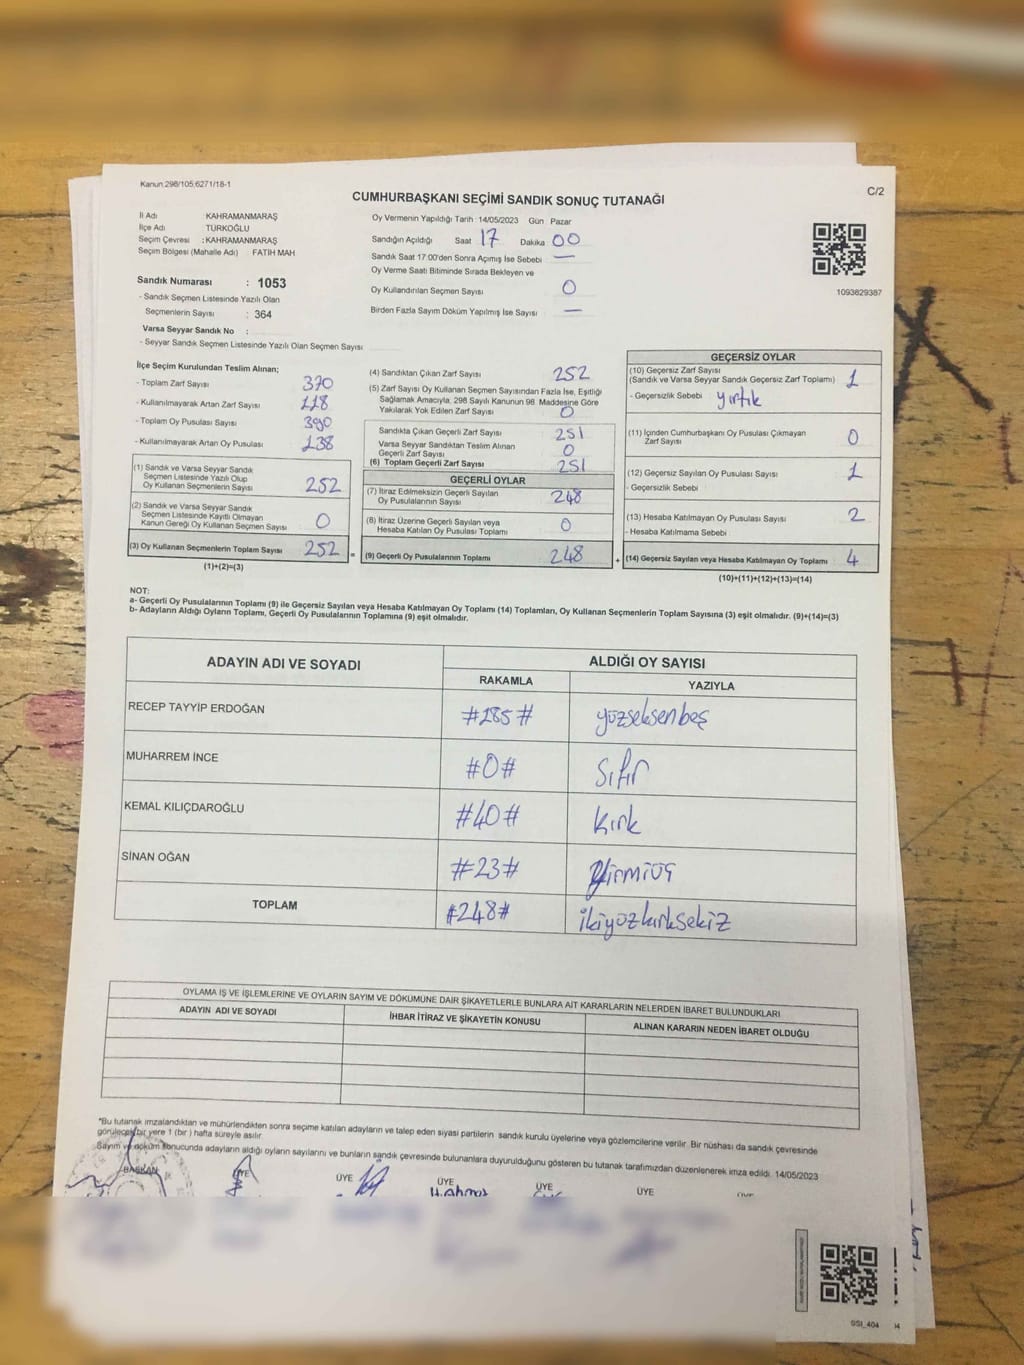 Kanun:298/105;6271/18-1
C/2
CUMHURBAŞKANI SEÇİMİ SANDIK SONUÇ TUTANAĞI
İl Adı KAHRAMANMARAŞ
İlçe Adı TÜRKOĞLU
Seçim Çevresi : KAHRAMANMARAŞ
Seçim Bölgesi (Mahalle Adı) FATİH MAH.
Oy Vermenin Yapıldığı Tarih : 14/05/2023 Gün Pazar
Sandığın Açıldığı Saat 17 Dakika 00
Sandık Saat 17:00'den Sonra Açımış İse Sebebi —
Oy Verme Saati Bitiminde Sırada Bekleyen ve
Oy Kullandırılan Seçmen Sayısı 0
Birden Fazla Sayım Döküm Yapılmış İse Sayısı —
1093829387
Sandık Numarası : 1053
- Sandık Seçmen Listesinde Yazılı Olan
Seçmenlerin Sayısı : 364
Varsa Seyyar Sandık No :
- Seyyar Sandık Seçmen Listesinde Yazılı Olan Seçmen Sayısı
İlçe Seçim Kurulundan Teslim Alınan;
- Toplam Zarf Sayısı 370
- Kullanılmayarak Artan Zarf Sayısı 118
- Toplam Oy Pusulası Sayısı 390
- Kullanılmayarak Artan Oy Pusulası 138
(1) Sandık ve Varsa Seyyar Sandık
Seçmen Listesinde Yazılı Olup
Oy Kullanan Seçmenlerin Sayısı 252
(2) Sandık ve Varsa Seyyar Sandık
Seçmen Listesinde Kayıtlı Olmayan
Kanun Gereği Oy Kullanan Seçmen Sayısı 0
(3) Oy Kullanan Seçmenlerin Toplam Sayısı 252 =
(1)+(2)=(3)
(4) Sandıktan Çıkan Zarf Sayısı 252
(5) Zarf Sayısı Oy Kullanan Seçmen Sayısından Fazla İse, Eşitliği
Sağlamak Amacıyla, 298 Sayılı Kanunun 98. Maddesine Göre
Yakılarak Yok Edilen Zarf Sayısı 0
Sandıkta Çıkan Geçerli Zarf Sayısı 251
Varsa Seyyar Sandıktan Teslim Alınan
Geçerli Zarf Sayısı 0
(6) Toplam Geçerli Zarf Sayısı 251
GEÇERLİ OYLAR
(7) İtiraz Edilmeksizin Geçerli Sayılan
Oy Pusulalarının Sayısı 248
(8) İtiraz Üzerine Geçerli Sayılan veya
Hesaba Katılan Oy Pusulası Toplamı 0
(9) Geçerli Oy Pusulalarının Toplamı 248 +
GEÇERSİZ OYLAR
(10) Geçersiz Zarf Sayısı
(Sandık ve Varsa Seyyar Sandık Geçersiz Zarf Toplamı) 1
- Geçersizlik Sebebi yırtık
(11) İçinden Cumhurbaşkanı Oy Pusulası Çıkmayan
Zarf Sayısı 0
(12) Geçersiz Sayılan Oy Pusulası Sayısı 1
- Geçersizlik Sebebi
(13) Hesaba Katılmayan Oy Pusulası Sayısı 2
- Hesaba Katılmama Sebebi
(14) Geçersiz Sayılan veya Hesaba Katılmayan Oy Toplamı 4
(10)+(11)+(12)+(13)=(14)
NOT:
a- Geçerli Oy Pusulalarının Toplamı (9) ile Geçersiz Sayılan veya Hesaba Katılmayan Oy Toplamı (14) Toplamları, Oy Kullanan Seçmenlerin Toplam Sayısına (3) eşit olmalıdır. (9)+(14)=(3)
b- Adayların Aldığı Oyların Toplamı, Geçerli Oy Pusulalarının Toplamına (9) eşit olmalıdır.
ADAYIN ADI VE SOYADI ALDIĞI OY SAYISI
RAKAMLA YAZIYLA
RECEP TAYYİP ERDOĞAN #185# yüzseksenbeş
MUHARREM İNCE #0# sıfır
KEMAL KILIÇDAROĞLU #40# kırk
SİNAN OĞAN #23# yirmiüç
TOPLAM #248# ikiyüzkırksekiz
OYLAMA İŞ VE İŞLEMLERİNE VE OYLARIN SAYIM VE DÖKÜMÜNE DAİR ŞİKAYETLERLE BUNLARA AİT KARARLARIN NELERDEN İBARET BULUNDUKLARI
ADAYIN ADI VE SOYADI İHBAR İTİRAZ VE ŞİKAYETİN KONUSU ALINAN KARARIN NEDEN İBARET OLDUĞU
*Bu tutanak imzalandıktan ve mühürlendikten sonra seçime katılan adayların ve talep eden siyasi partilerin sandık kurulu üyelerine veya gözlemcilerine verilir. Bir nüshası da sandık çevresinde
görülecek bir yere 1 (bir) hafta süreyle asılır.
Sayım ve döküm sonucunda adayların aldığı oyların sayılarını ve bunların sandık çevresinde bulunanlara duyurulduğunu gösteren bu tutanak tarafımızdan düzenlenerek imza edildi. 14/05/2023
BAŞKAN ÜYE ÜYE ÜYE ÜYE ÜYE
SSI_404